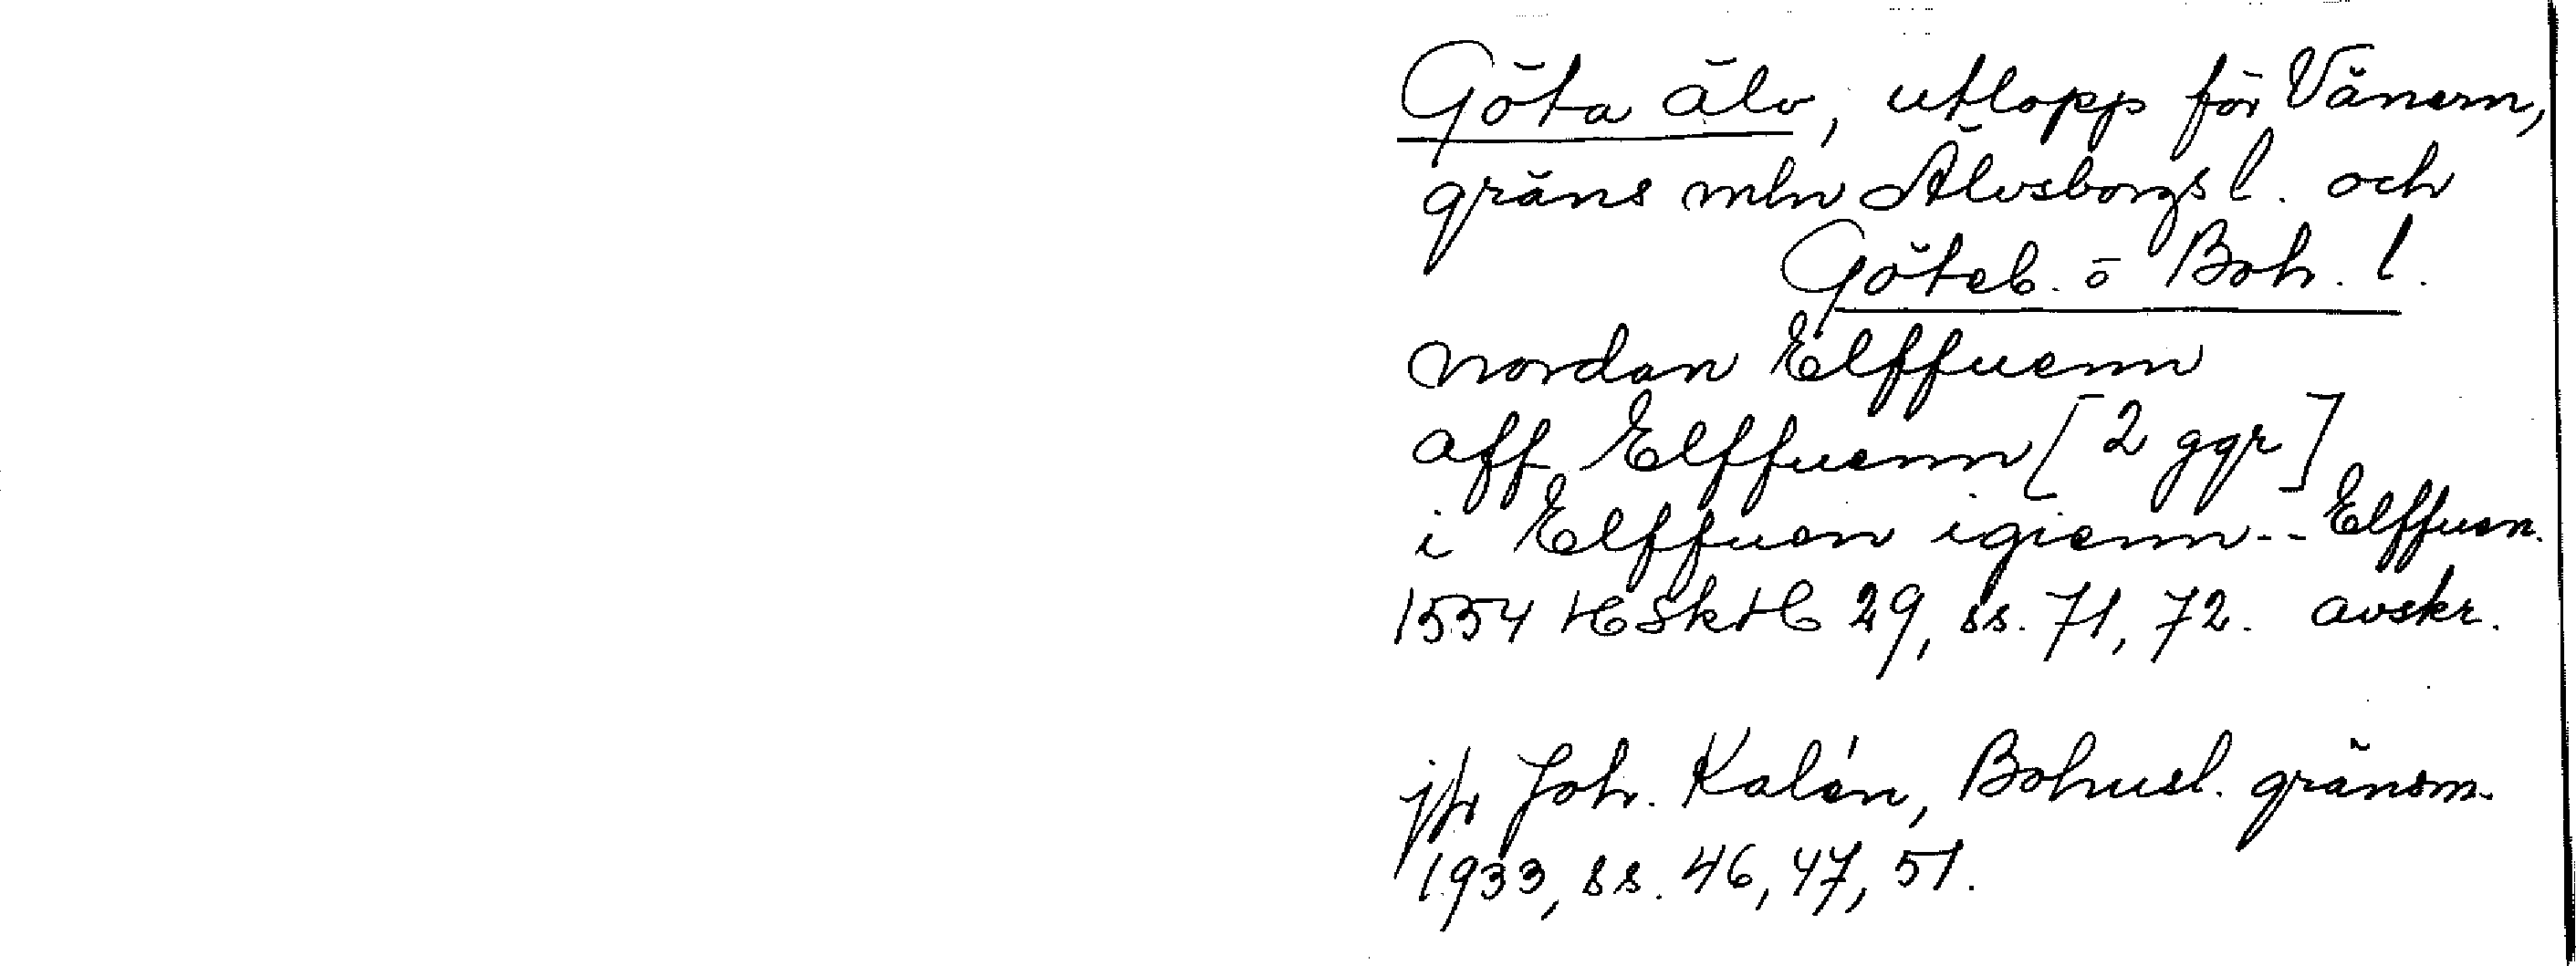 Göta älv, utlopp för Vänern,
gräns mln Älvsborgs l. och
Göteb. o Boh. l.
nordan Elffuenn
aff Elffuenn [2 ggr]
i Elffuen igienn -- Elffuen.
1554 HSkH 29, ss. 71, 72. avskr.
jfr Joh. Kalén, Bohusl. gränsm.
1933, ss. 46, 47, 51.